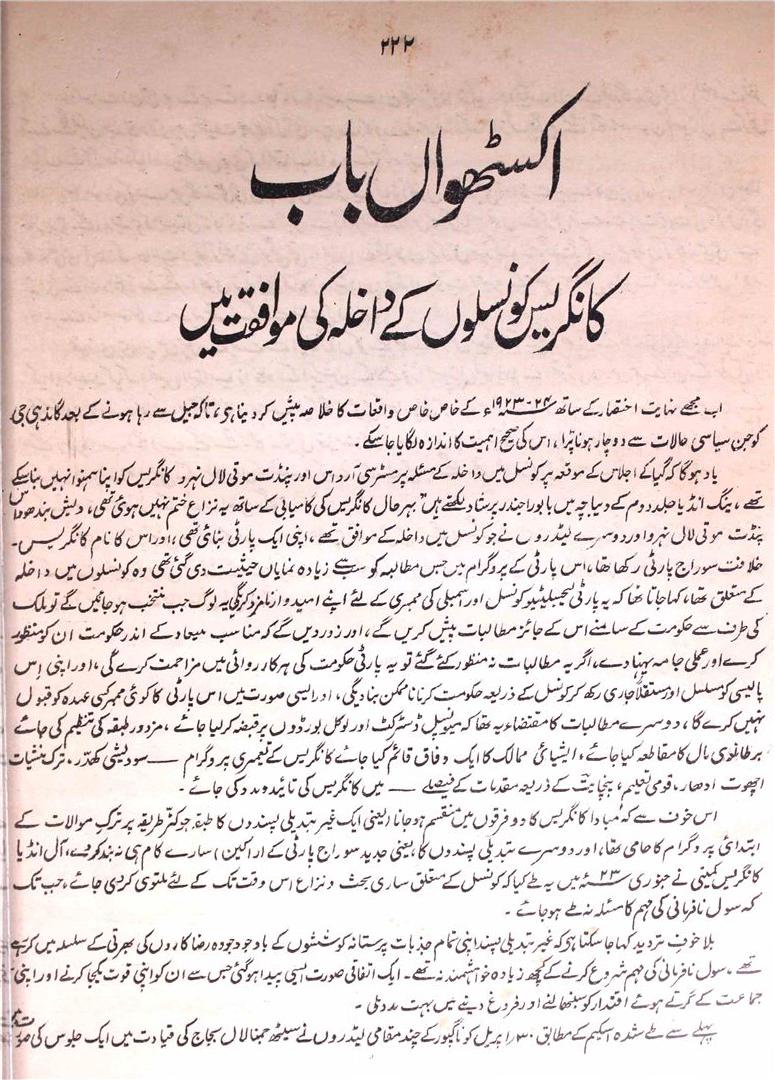 ۲۲۲
اکسٹھواں باب
کانگریس کونسلوں کے داخلہ کی موافقت میں
اب مجھے نہایت اختصار کے ساتھ ۲۴-۱۹۲۳ء کے خاص خاص واقعات کا خلاصہ پیش کر دینا ہی، تاکہ جیل سے رہا ہونے کے بعد گاندھی جی
کو جن سیاسی حالات سے دوچار ہونا پڑا، اس کی صحیح اہمیت کا اندازہ لگایا جا سکے۔
یاد ہوگا کہ گیا کے اجلاس کے موقعہ پر کونسل میں داخلہ کے مسئلہ پر مسٹر سی آر داس اور پنڈت موتی لال نہرو کانگریس کو اپنا ہمنوا نہیں بنا سکے
تھے، ینگ انڈیا جلد دوم کے دیباچہ میں بابو راجندر پرشاد لکھتے ہیں "بہر حال کانگریس کی کامیابی کے ساتھ یہ نزاع ختم نہیں ہوئی تھی، دیش بندھو داس
پنڈت موتی لال نہرو اور دوسرے لیڈروں نے جو کونسل میں داخلہ کے موافق تھے، اپنی ایک پارٹی بنائی تھی، اور اس کا نام کانگریس۔
خلافت سوراج پارٹی رکھا تھا، اس پارٹی کے پروگرام میں جس مطالبہ کو سب سے زیادہ نمایاں حیثیت دی گئی تھی وہ کونسلوں میں داخلہ
کے متعلق تھا، کہا جاتا تھا کہ یہ پارٹی لیجسلیٹیو کونسل اور اسمبلی کی ممبری کے لئے اپنے امیدوار نامزد کریگی یہ لوگ جب منتخب ہو جائیں گے تو ملک
کی طرف سے حکومت کے سامنے اس کے جائز مطالبات پیش کریں گے، اور زور دیں گے کہ مناسب میعاد کے اندر حکومت ان کو منظور
کرے اور عملی جامہ پہنا دے، اگر یہ مطالبات نہ منظور کئے گئے تو یہ پارٹی حکومت کی ہر کارروائی میں مزاحمت کرے گی، اور اپنی اس
پالیسی کو مسلسل اور مستقلاً جاری رکھ کر کونسل کے ذریعہ حکومت کرنا ناممکن بنا دیگی، اور ایسی صورت میں اس پارٹی کا کوئی ممبر کسی عہدہ کو قبول
نہیں کرے گا، دوسرے مطالبات کا مقتضاء یہ تھا کہ میونسپل ڈسٹرکٹ اور لوکل بورڈوں پر قبضہ کر لیا جائے، مزدور طبقہ کی تنظیم کی جائے
برطانوی مال کا مقاطعہ کیا جائے، ایشیائی ممالک کا ایک وفاق قائم کیا جائے کانگریس کے تعمیری پروگرام — سودیشی کھدر، ترک منشیات
اچھوت ادھار، قومی تعلیم، پنچایت کے ذریعہ مقدمات کے فیصلے — میں کانگریس کی تائید و مدد کی جائے۔
اس خوف سے کہ مبادا کانگریس کا دو فرقوں میں منقسم ہو جانا (یعنی ایک غیر تبدیلی پسندوں کا طبقہ جو کٹر طریقہ پر ترک موالات کے
ابتدائی پروگرام کا حامی تھا، اور دوسرے تبدیلی پسندوں کا، یعنی جدید سوراج پارٹی کے اراکین) سارے کام ہی نہ بند کر دے، آل انڈیا
کانگریس کمیٹی نے جنوری ۲۳ء میں یہ طے کیا کہ کونسل کے متعلق ساری بحث و نزاع اس وقت تک کے لئے ملتوی کر دی جائے، جب تک
کہ سول نافرمانی کی مہم کا مسئلہ نہ طے ہو جائے۔
بلا خوف تردید کہا جا سکتا ہی کہ غیر تبدیلی پسند اپنی تمام جذبات پرستانہ کوششوں کے باوجود جو وہ رضا کاروں کی بھرتی کے سلسلہ میں کر رہے
تھے، سول نافرمانی کی مہم شروع کرنے کے کچھ زیادہ خواہشمند نہ تھے۔ ایک اتفاقی صورت ایسی پیدا ہو گئی جس سے ان کو اپنی قوت یکجا کرنے اور اپنی
جماعت کے گرتے ہوئے اقتدار کو سنبھالنے اور فروغ دینے میں بہت مدد ملی۔
پہلے سے طے شدہ اسکیم کے مطابق ۳۰؍ اپریل کو ناگپور کے چند مقامی لیڈروں نے سیٹھ جمنا لال بجاج کی قیادت میں ایک جلوس کی صورت میں